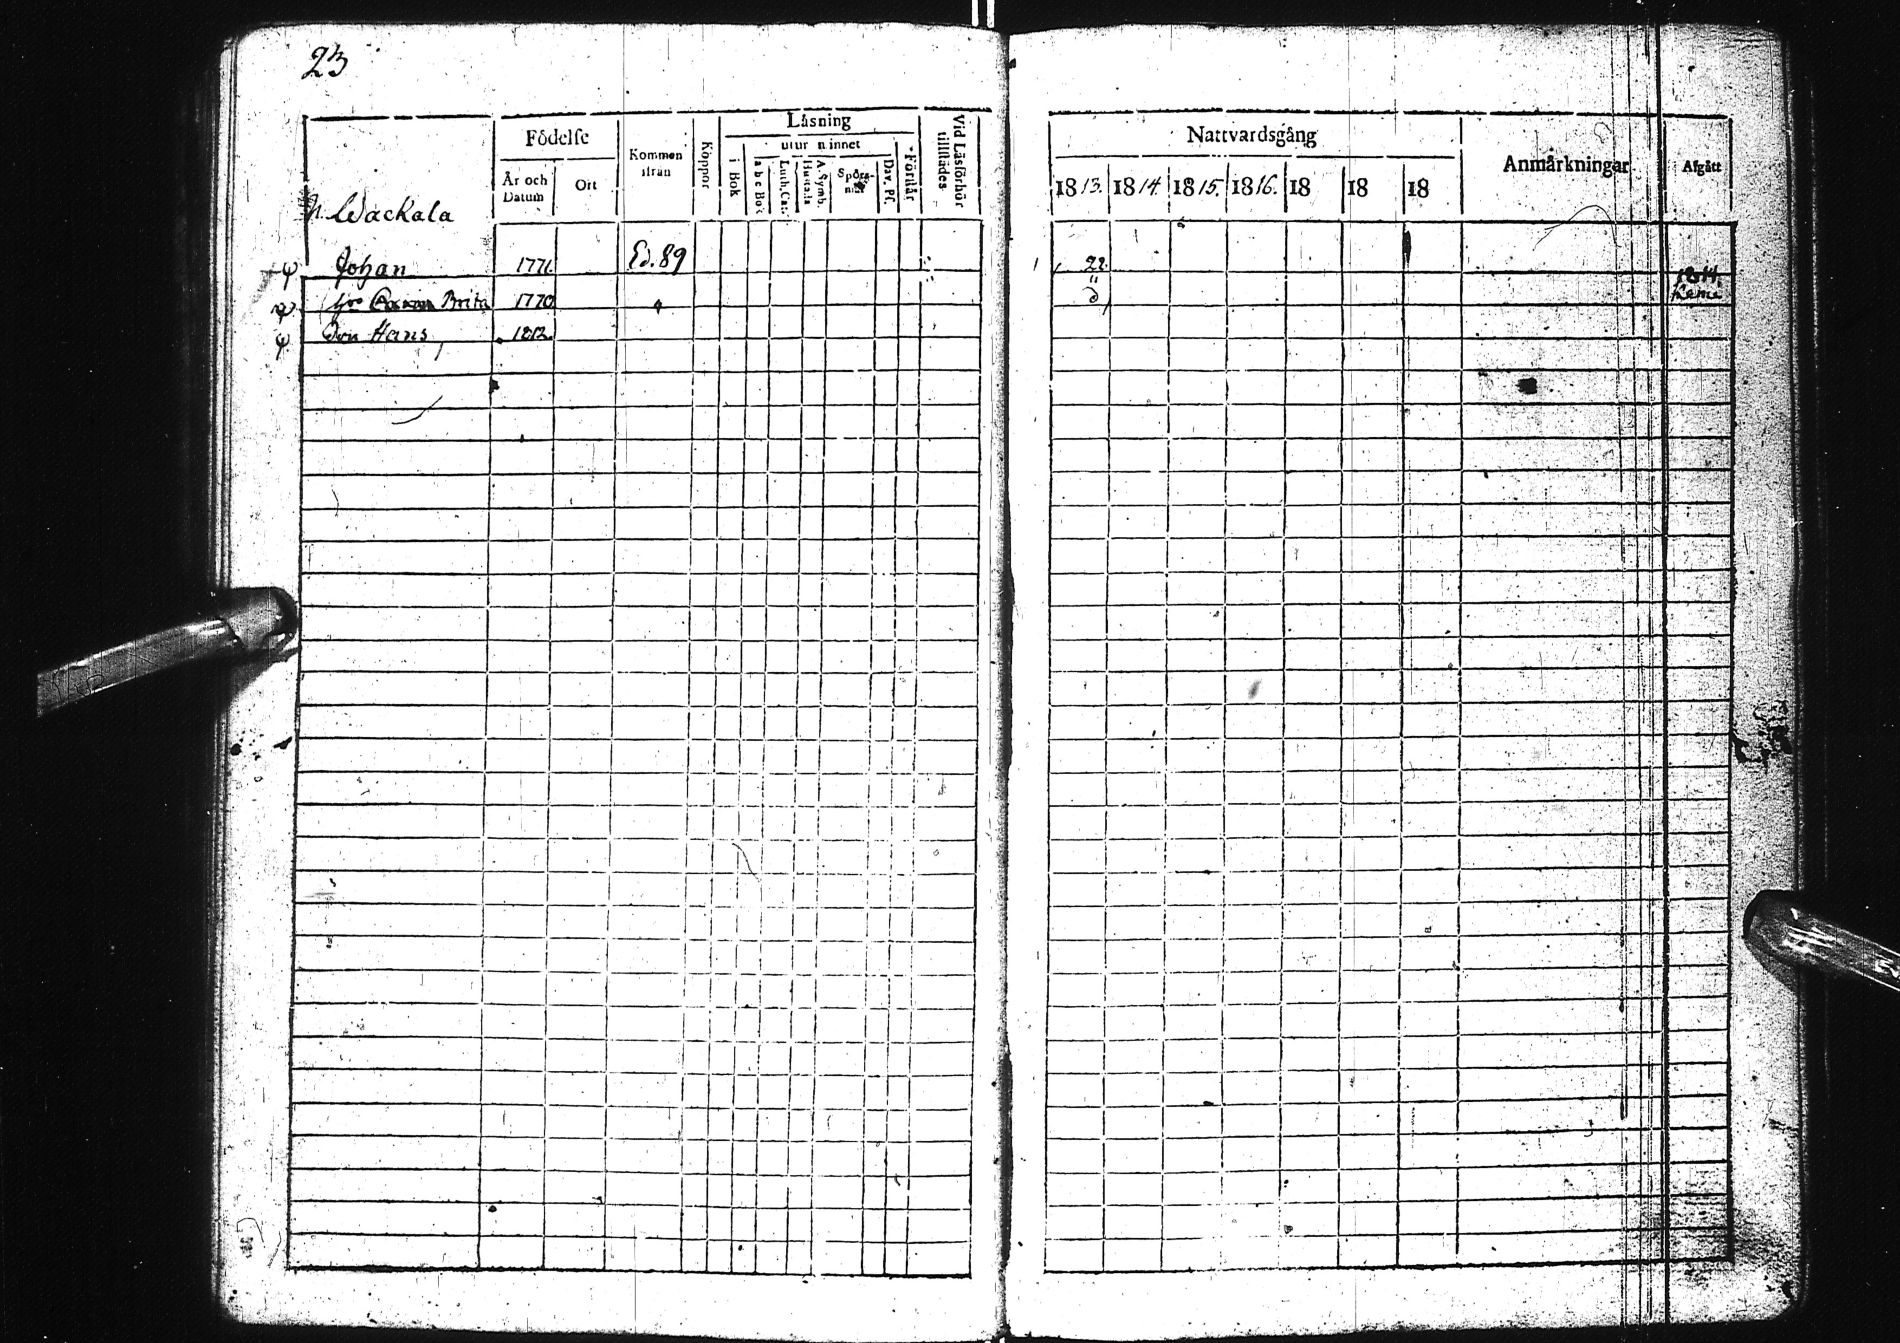 23
Födelse
Kommen ifrån
Koppor
Läsning
utur minnet
Vid Läsförhör tillstädes
År och Datum
Ort
i Bok
a b c Bok
Luth. Cat.
A. Symb. Hustafla
Spörs-mål
Dav. Ps.
Förstår
N. Wackala
Johan 1771. Ed. 89
Brita 1770 "
Son Hans 1812.
Nattvardsgång
Anmärkningar
Afgått
1813. 1814. 1815. 1816. 18 18 18
22 1814.
Kemi